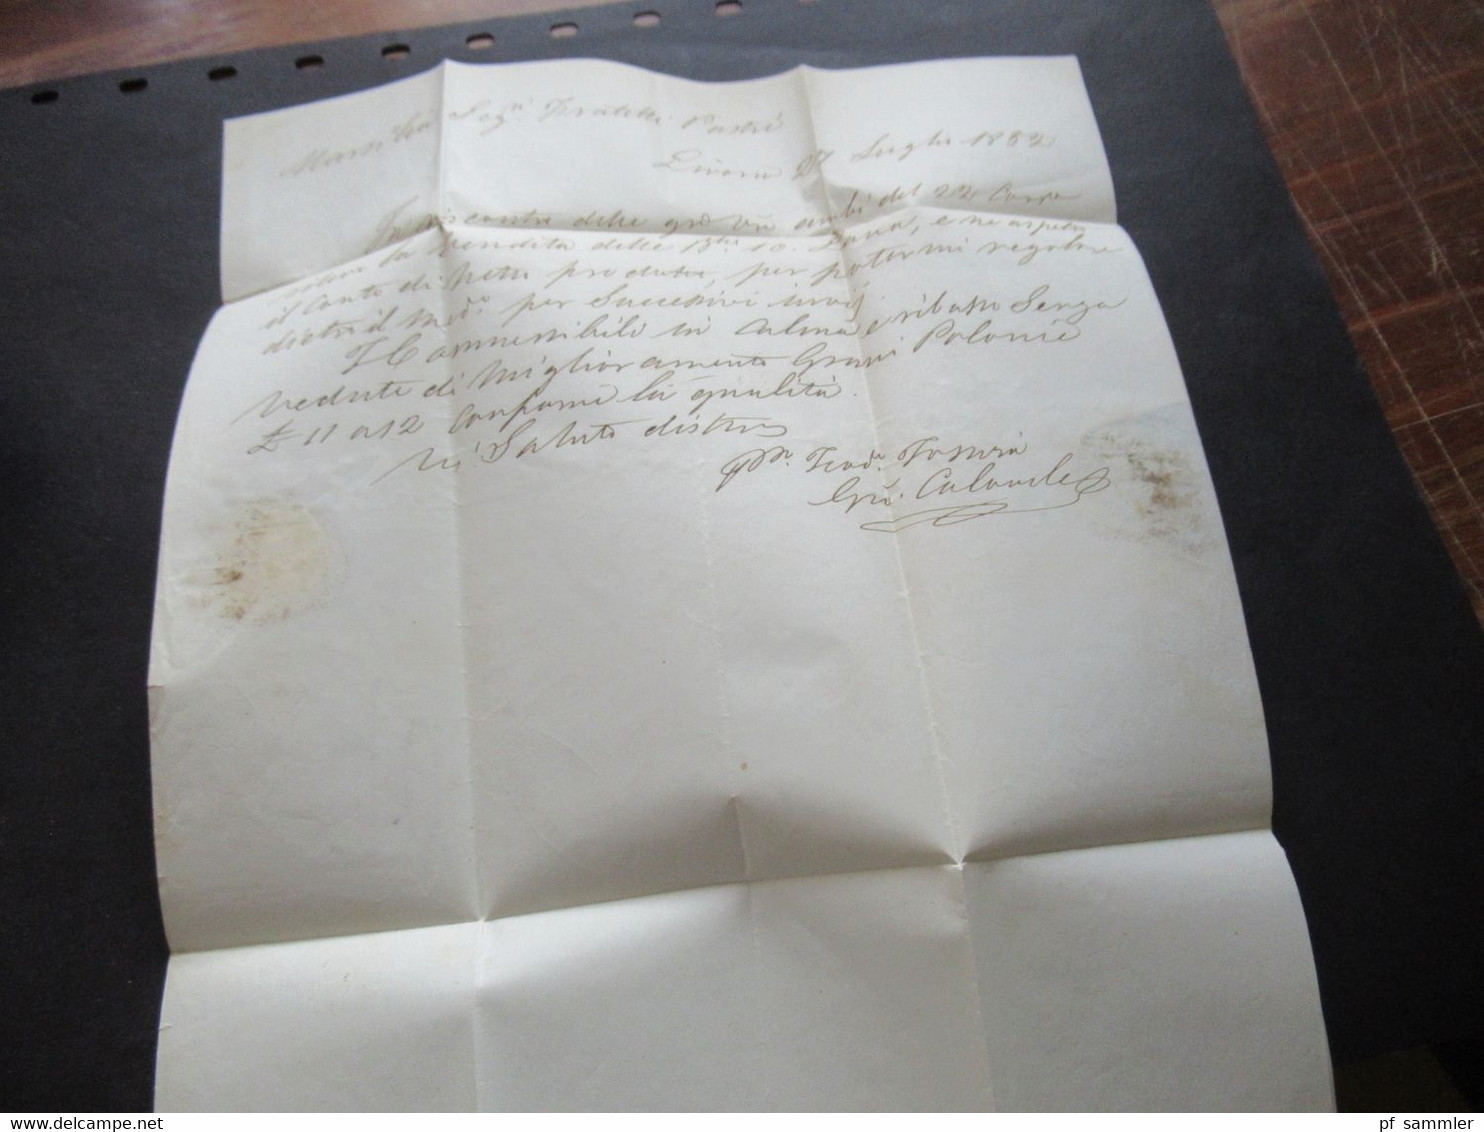 Marsilia Sigri Fratelli Pastré
Livorno 27 Luglio 1852
In riscontro delle gra vra ambi del 22 Corre
la vendita delle Blle 10. Lana, e ne aspetto
il Conto di Netto prodotto, per potermi regolare
dietro il Medo per Successivi invij
I Commestibili in calma e ribasso Senza
vedute di Miglioramento Grani Polonia
£ 11 a 12 Conforme la qualità.
Vi Saluto distine
ppn. Teodo.
Gio.
pf_sammler